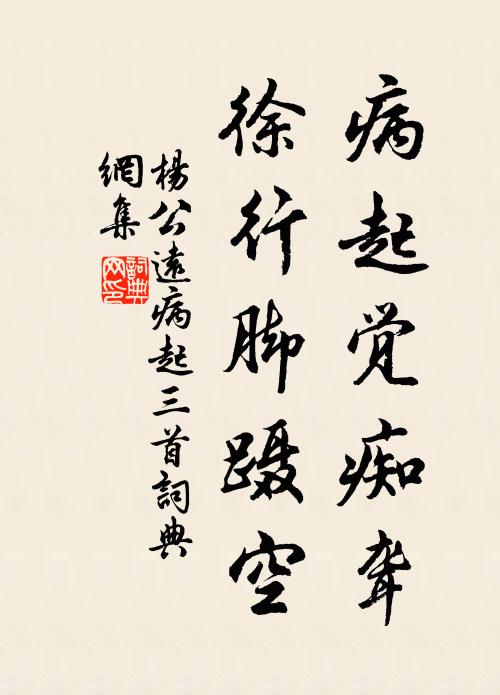 病起觉痴聋
徐行脚蹑空
楊公遠病起三首詞典
網集
詞典
网印